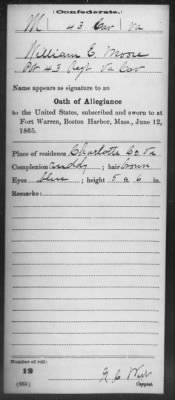 (Confederate.)
M 43 Cav Va
William E. Moore
Pvt 43 Regt Va Cav
Name appears as signature to an
Oath of Allegiance
to the United States, subscribed and sworn to at
Fort Warren, Boston Harbor, Mass., June 12,
1865.
Place of residence Charlotte Co Va
Complexion ruddy ; hair brown
Eyes blue ; height 5 ft. 6 in.
Remarks:
Number of roll:
12
Copyist.